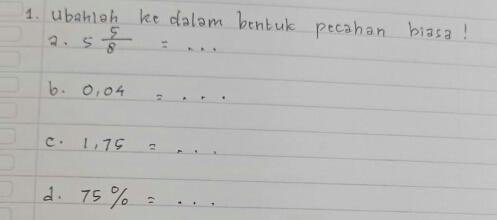 1. Ubahlah ke dalam bentuk pecahan biasa!
a. 5 5/8 = ...
b. 0,04 = ...
c. 1,75 = ...
d. 75% = ...